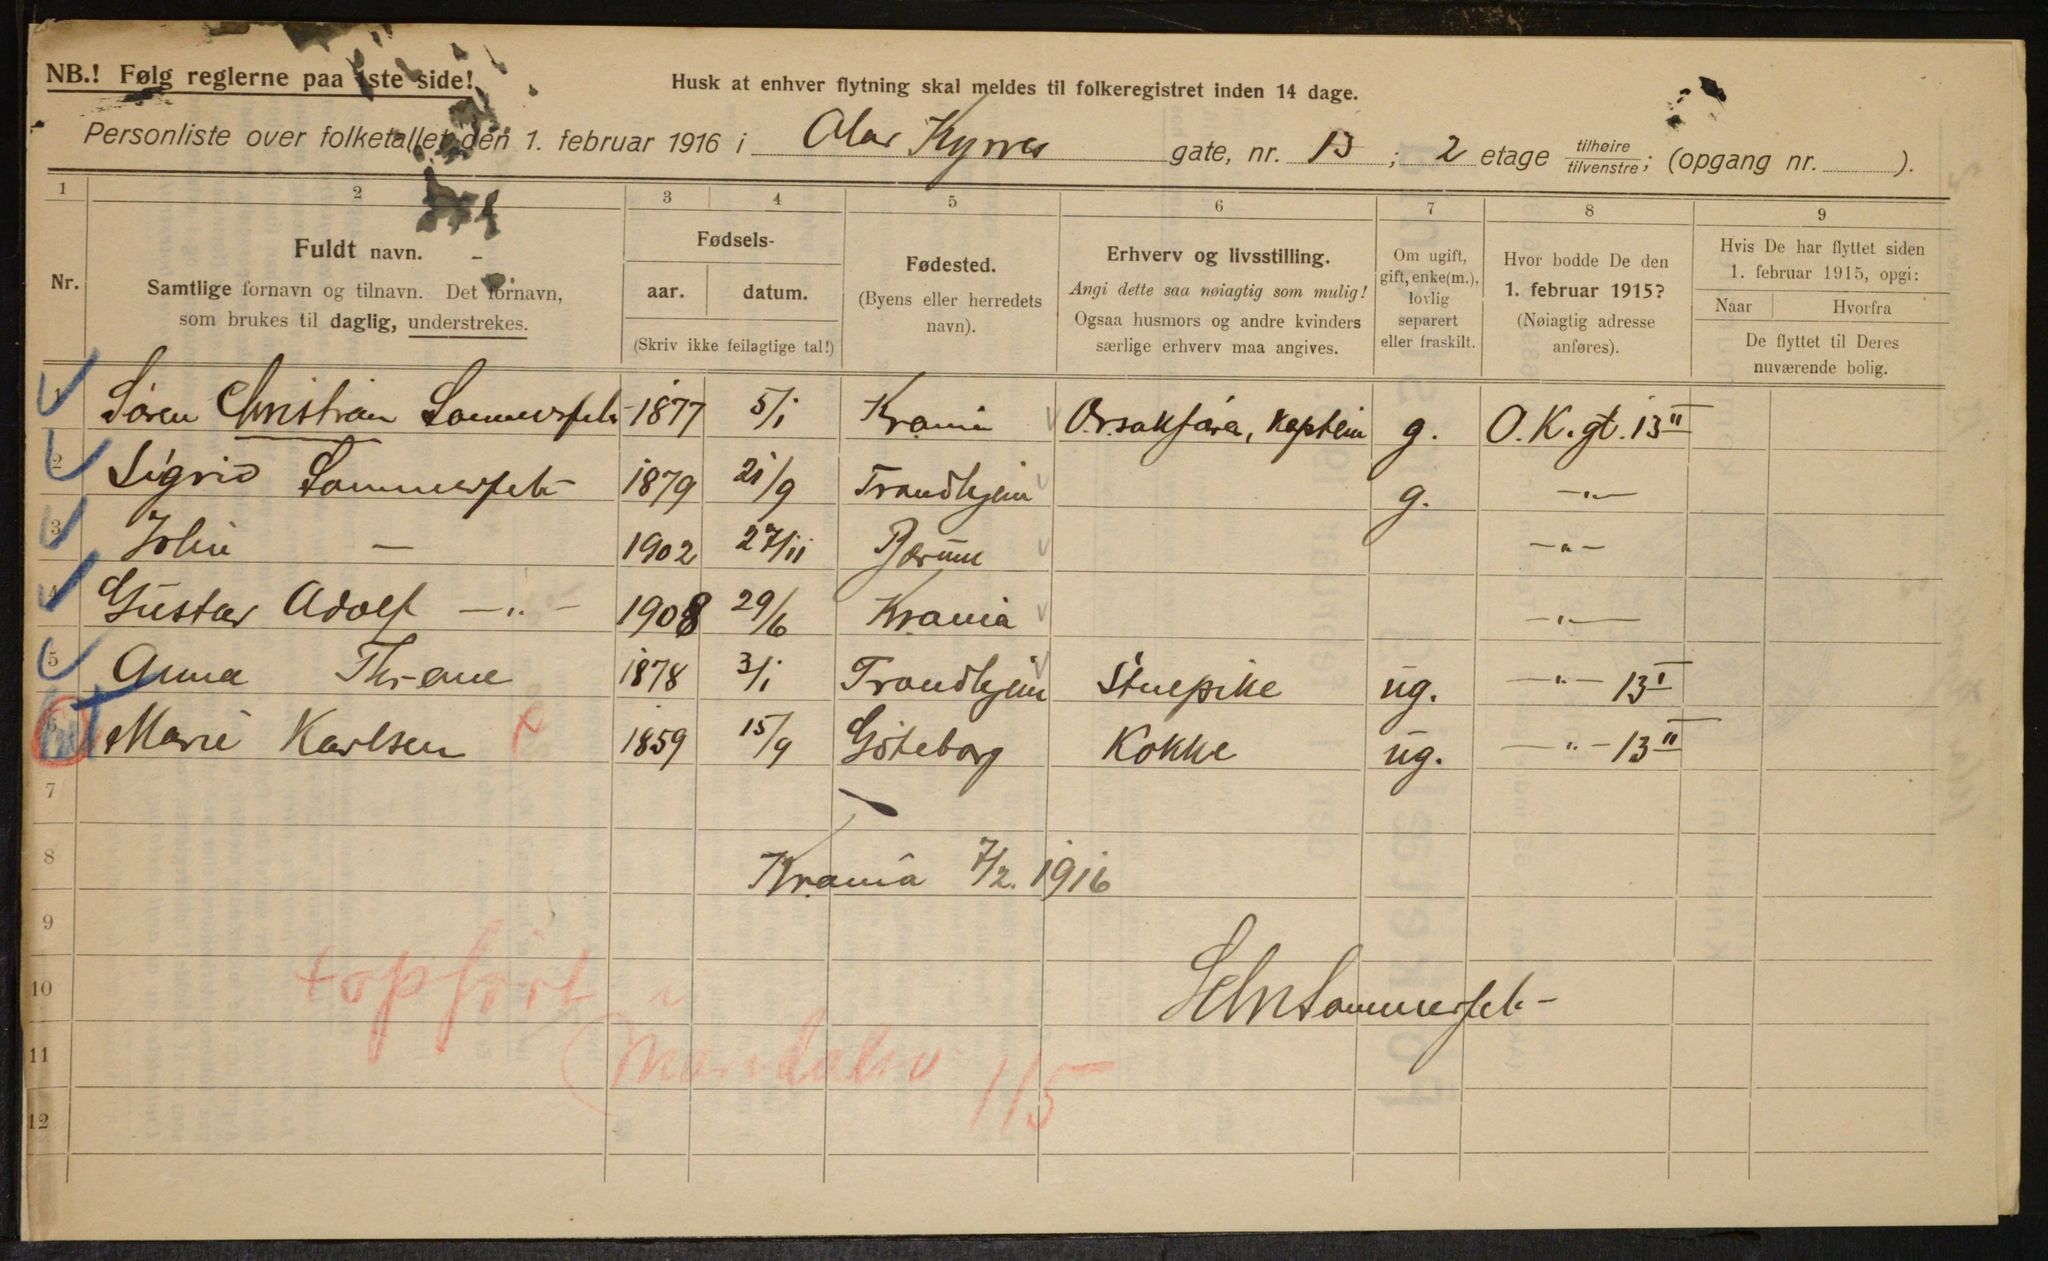 NB.! Følg reglerne paa 1ste side!
Husk at enhver flytning skal meldes til folkeregistret inden 14 dage.
Personliste over folketallet den 1. februar 1916 i Olav Kyrres gate, nr. 13; 2 etage tilhøire tilvenstre; (opgang nr. ).
1 2 3 4 5 6 7 8 9
Nr.
Fuldt navn.
Samtlige fornavn og tilnavn. Det fornavn,
som brukes til daglig, understrekes.
Fødsels-
aar. datum.
(Skriv ikke feilagtige tal!)
Fødested.
(Byens eller herredets
navn).
Erhverv og livsstilling.
Angi dette saa nøiagtig som mulig!
Ogsaa husmors og andre kvinders
særlige erhverv maa angives.
Om ugift,
gift, enke(m.),
lovlig
separert
eller fraskilt.
Hvor bodde De den
1. februar 1915?
(Nøiagtig adresse
anføres).
Hvis De har flyttet siden
1. februar 1915, opgi:
Naar Hvorfra
De flyttet til Deres
nuværende bolig.
1 Søren Christian Sommerfelt 1877 5/1 Krania Orsakfører, Kaptein g. O.K.gt. 13 II
2 Sigrid Sommerfelt 1879 21/9 Trondhjem g. —"—
3 John — 1902 27/11 Bærum —"—
4 Gustav Adolf —"— 1908 29/6 Krania —"—
5 Anna Thrane 1878 3/1 Trondhjem Stuepike ug. —"— 13 I
6 Marie Karlsen x 1859 15/9 Göteborg Kokke ug. —"— 13 II
7
8 Krania 7/2. 1916
9
10 + opført i
SChrSommerfelt
11 Mandalsv 115
12